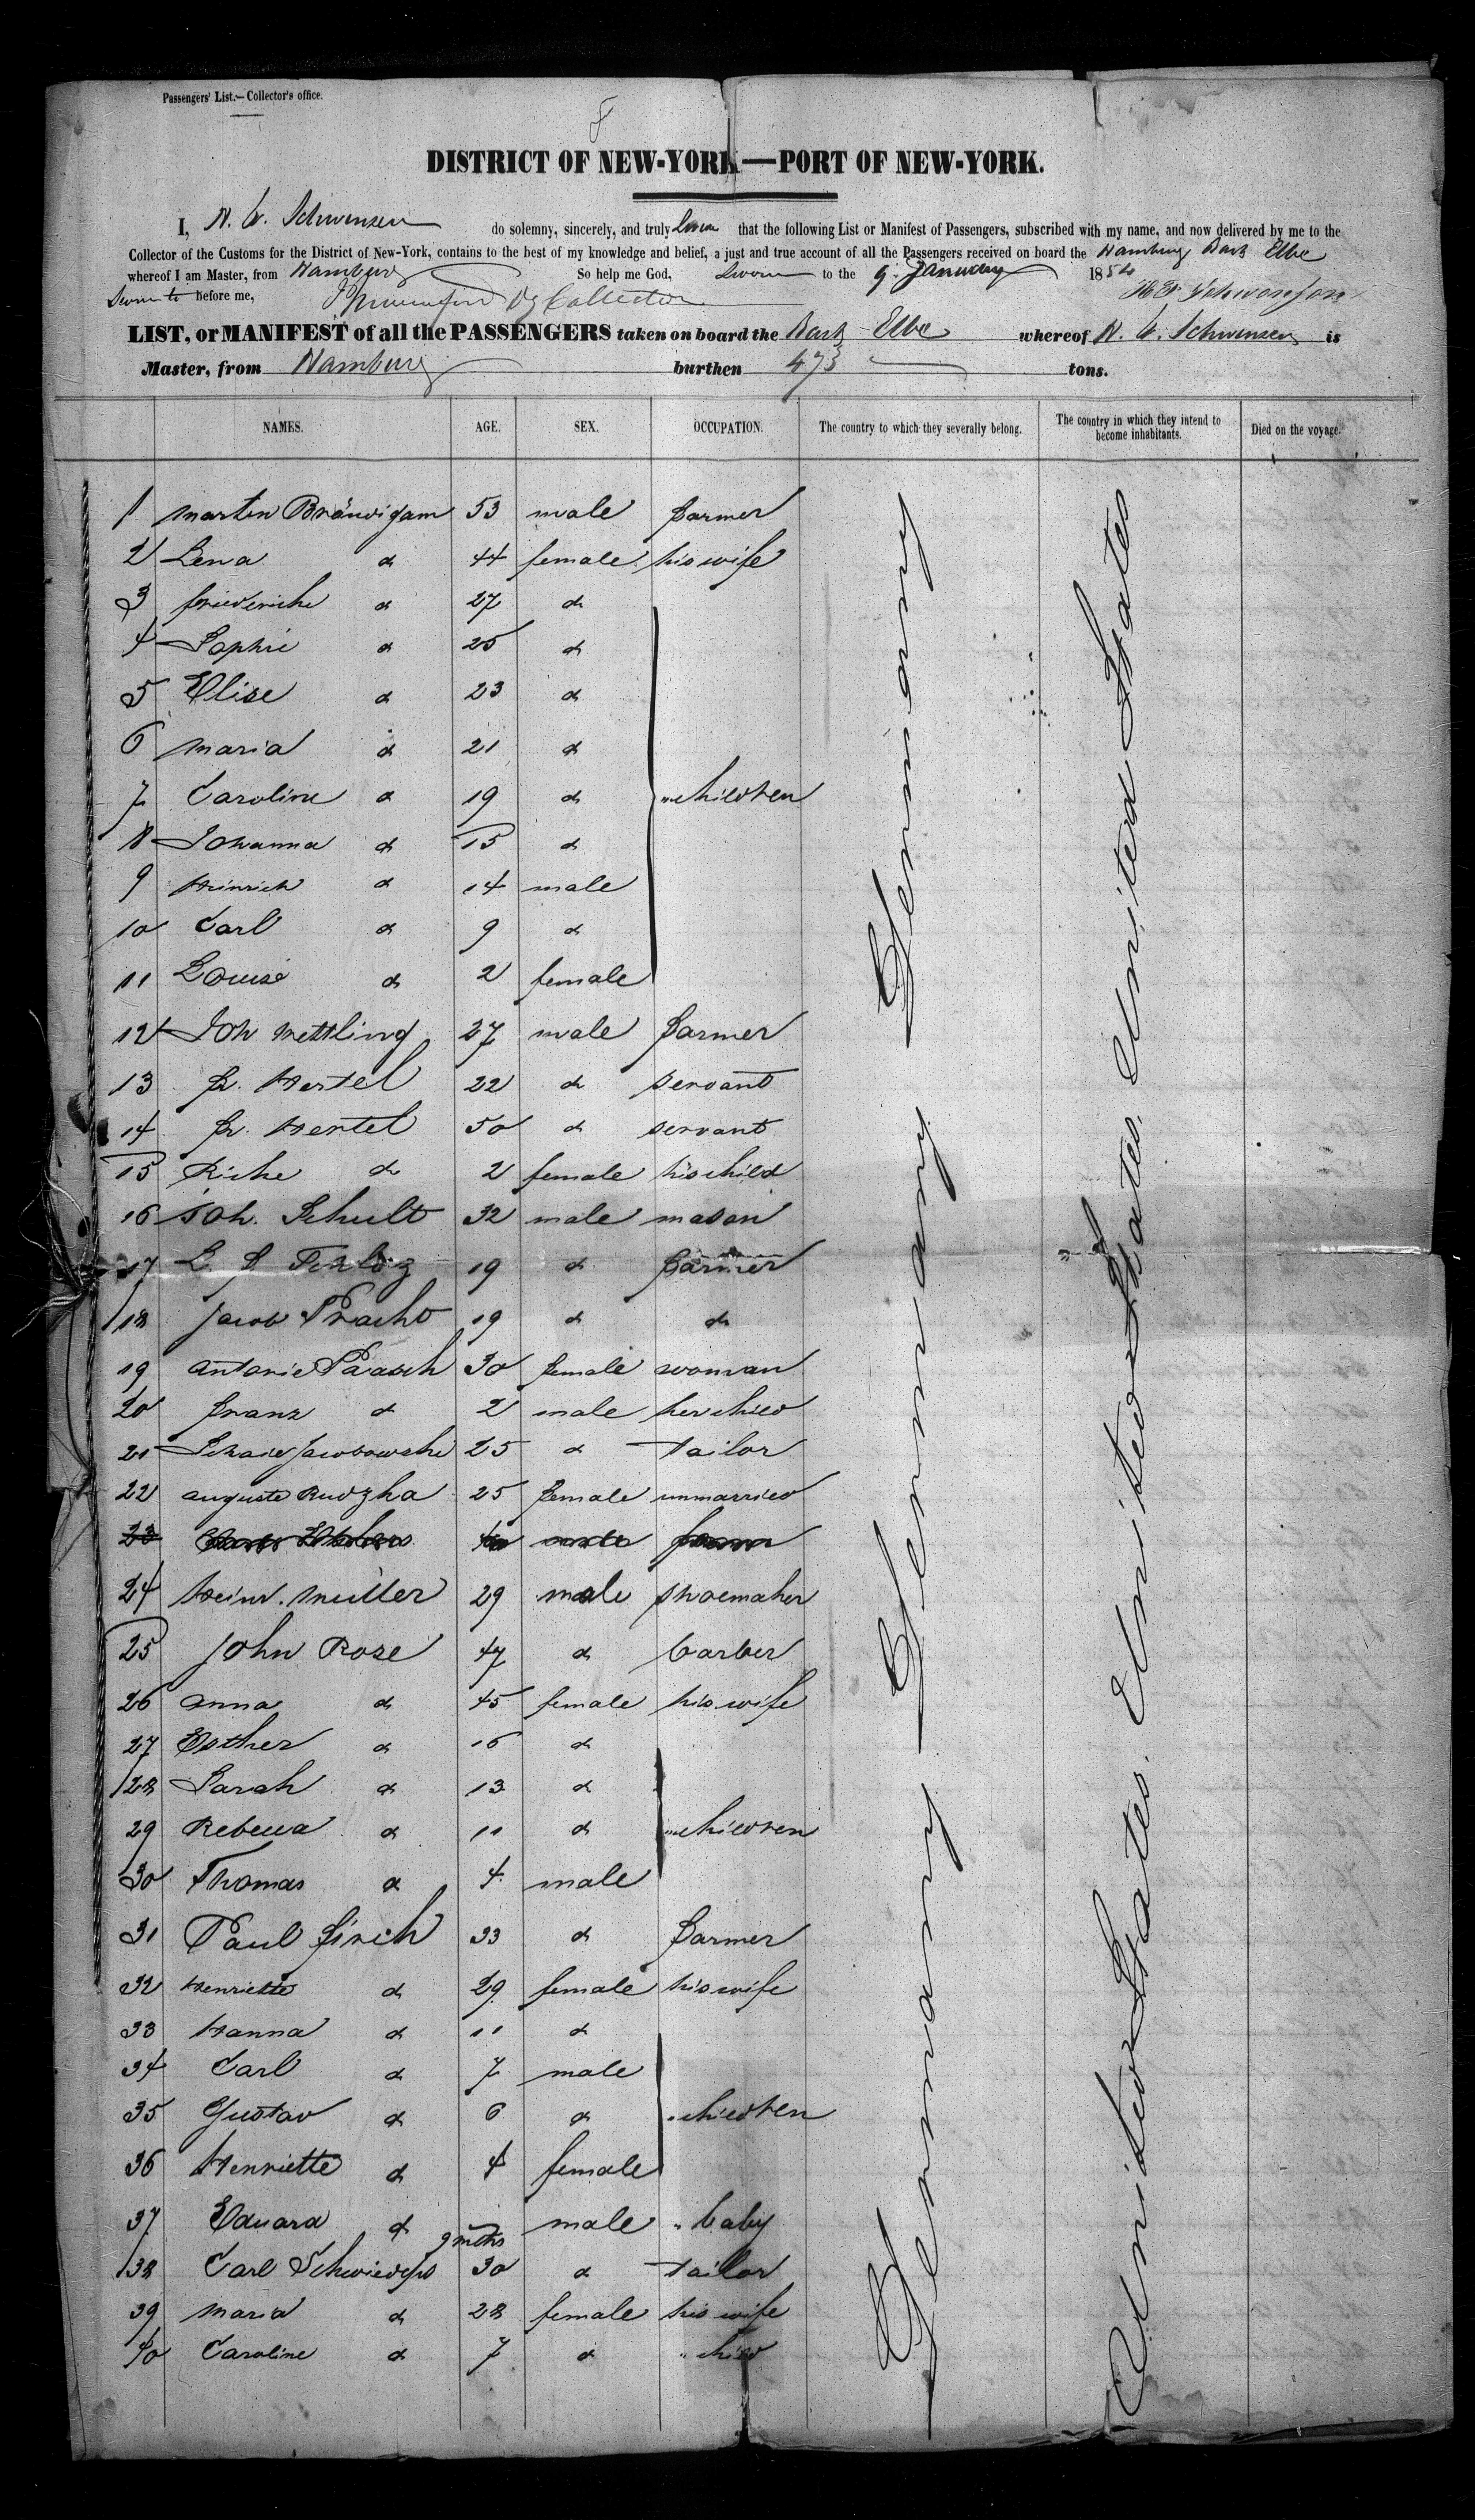 Passengers' List.—Collector's office.
8
DISTRICT OF NEW-YORK—PORT OF NEW-YORK.
I, N. W. Schwensen do solemny, sincerely, and truly Swear that the following List or Manifest of Passengers, subscribed with my name, and now delivered by me to the
Collector of the Customs for the District of New-York, contains to the best of my knowledge and belief, a just and true account of all the Passengers received on board the Hamburg Bark Elbe
whereof I am Master, from Hamburg So help me God, Sworn to the 9. January 185
Sworn to before me, Dy Collector
LIST, or MANIFEST of all the PASSENGERS taken on board the Bark Elbe whereof N. W. Schwensen is
Master, from Hamburg burthen 473 tons.
NAMES. AGE. SEX. OCCUPATION. The country to which they severally belong. The country in which they intend to become inhabitants. Died on the voyage.
1 Martin Bräuigam 53 male farmer
2 Lena d 44 female his wife
3 friederike d 27 d
4 Sophie d 25 d
5 Elise d 23 d
6 Maria d 21 d
7 Caroline d 19 d " children
8 Johanna d 15 d
9 Heinrich d 14 male
10 Carl d 9 d
11 Louise d 2 female
12 Joh Mettling 27 male farmer
13 Fr. Hertel 22 d servant
14 Fr. Hertel 50 d servant
15 Rike d 2 female his child
16 Joh. Schult 32 male mason
17 L. F. 19 d farmer
18 Jacob Pracht 19 d d
19 Antonie Paasch 30 female woman
20 Franz d 2 male her child
21 Jacobowski 25 d tailor
22 Auguste Rudzka 25 female unmarried
23
24 Heinr. Müller 29 male shoemaker
25 John Rose 47 d barber
26 Anna d 45 female his wife
27 Esther d 16 d
28 Sarah d 13 d
29 Rebecca d 11 d " children
30 Thomas d 4 male
31 Paul Firch 33 d farmer
32 Henriette d 29 female his wife
33 Hanna d 11 d
34 Carl d 7 male
35 Gustav d 6 d " children
36 Henriette d 4 female
37 Eduard d 9 mths male " baby
38 Carl 30 d tailor
39 Maria d 28 female his wife
40 Caroline d 7 d " child
Germany Germany Germany Germany
United States United States. United States. United States